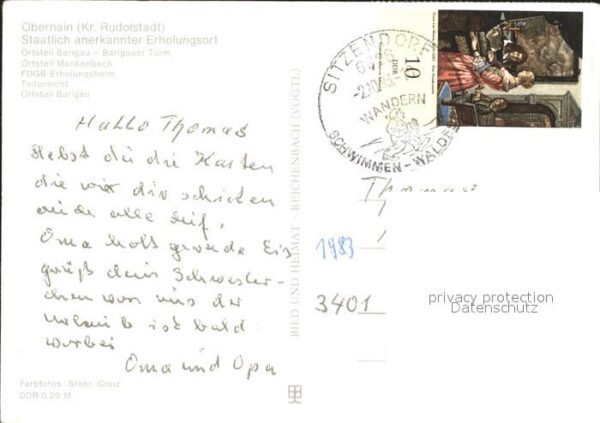 Oberhain (Kr. Rudolstadt)
Staatlich anerkannter Erholungsort
Ortsteil Barigau – Barigauer Turm
Ortsteil Mankenbach
FDGB-Erholungsheim
Teilansicht
Ortsteil Barigau
Hallo Thomas
Hebst du die Karten
die wir dir schicken
auch alle auf,
Oma holt gerade Eis
grüß dein Schwester-
chen von uns der
Urlaub ist bald
vorbei
Oma und Opa
Farbfotos: Stohr, Greiz
DDR 0,20 M
BILD UND HEIMAT · REICHENBACH (VOGTL)
SITZENDORF
WANDERN
SCHWIMMEN - WALDBAD
10
DDR
Thomas
1983
3401
privacy protection
Datenschutz